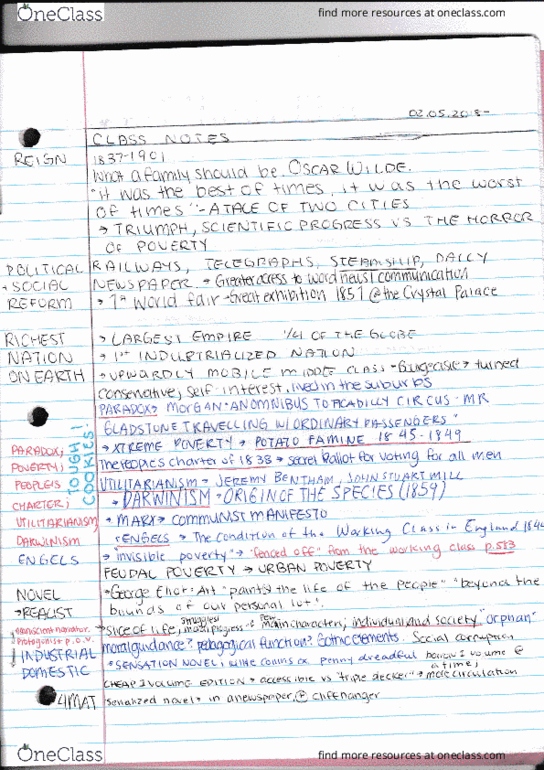 OneClass find more resources at oneclass.com
02.05.2018-
CLASS NOTES
REIGN 1837-1901
What a family should be. OSCAR WILDE.
"It was the best of times, it was the worst
of times" - A TALE OF TWO CITIES
→ TRIUMPH, SCIENTIFIC PROGRESS VS THE HORROR
OF POVERTY
POLITICAL RAILWAYS, TELEGRAPHS, STEAMSHIP, DAILY
+ SOCIAL NEWSPAPER → Greater access to word news/communication
REFORM → 1st World fair → Great exhibition 1851 @ the Crystal Palace
RICHEST → LARGEST EMPIRE 1/4 OF THE GLOBE
NATION → 1st INDUSTRIALIZED NATION
ON EARTH → UPWARDLY MOBILE MIDDLE CLASS - Bourgeoisie → turned
conservative, self-interest, lived in the suburbs
PARADOX → MORGAN: AN OMNIBUS TO PICADILLY CIRCUS - MR
GLADSTONE TRAVELLING W/ ORDINARY PASSENGERS"
TOUGH COOKIES!
PARADOX; → XTREME POVERTY → POTATO FAMINE 1845-1849
POVERTY; The People's charter of 1838 → secret Ballot for voting for all men
PEOPLE'S UTILITARIANISM → JEREMY BENTHAM, JOHN STUART MILL
CHARTER; → DARWINISM → ORIGIN OF THE SPECIES (1859)
UTILITARIANISM → MARX → COMMUNIST MANIFESTO
DARWINISM → ENGELS → The Condition of the Working Class in England 1844
ENGELS → "invisible poverty" → "fenced off" from the working class p.583
FEUDAL POVERTY → URBAN POVERTY
NOVEL → George Eliot: Art "paints the life of the people" "beyond the
→ REALIST bounds of our personal lot".
→ slice of life, struggles main characters, individual and society "orphan"
omniscient narrator.
Protagonist P.O.V. moral guidance? pedagogical function? Gothic elements. Social corruption
↓ INDUSTRIAL → SENSATION NOVEL; Wilkie Collins ex. penny dreadful 1 volume @
a time;
DOMESTIC CHEAP 1 VOLUME EDITION → accessible vs "triple decker" → more circulation
4MAT serialized novels in a newspaper, cliffhanger
OneClass find more resources at oneclass.com